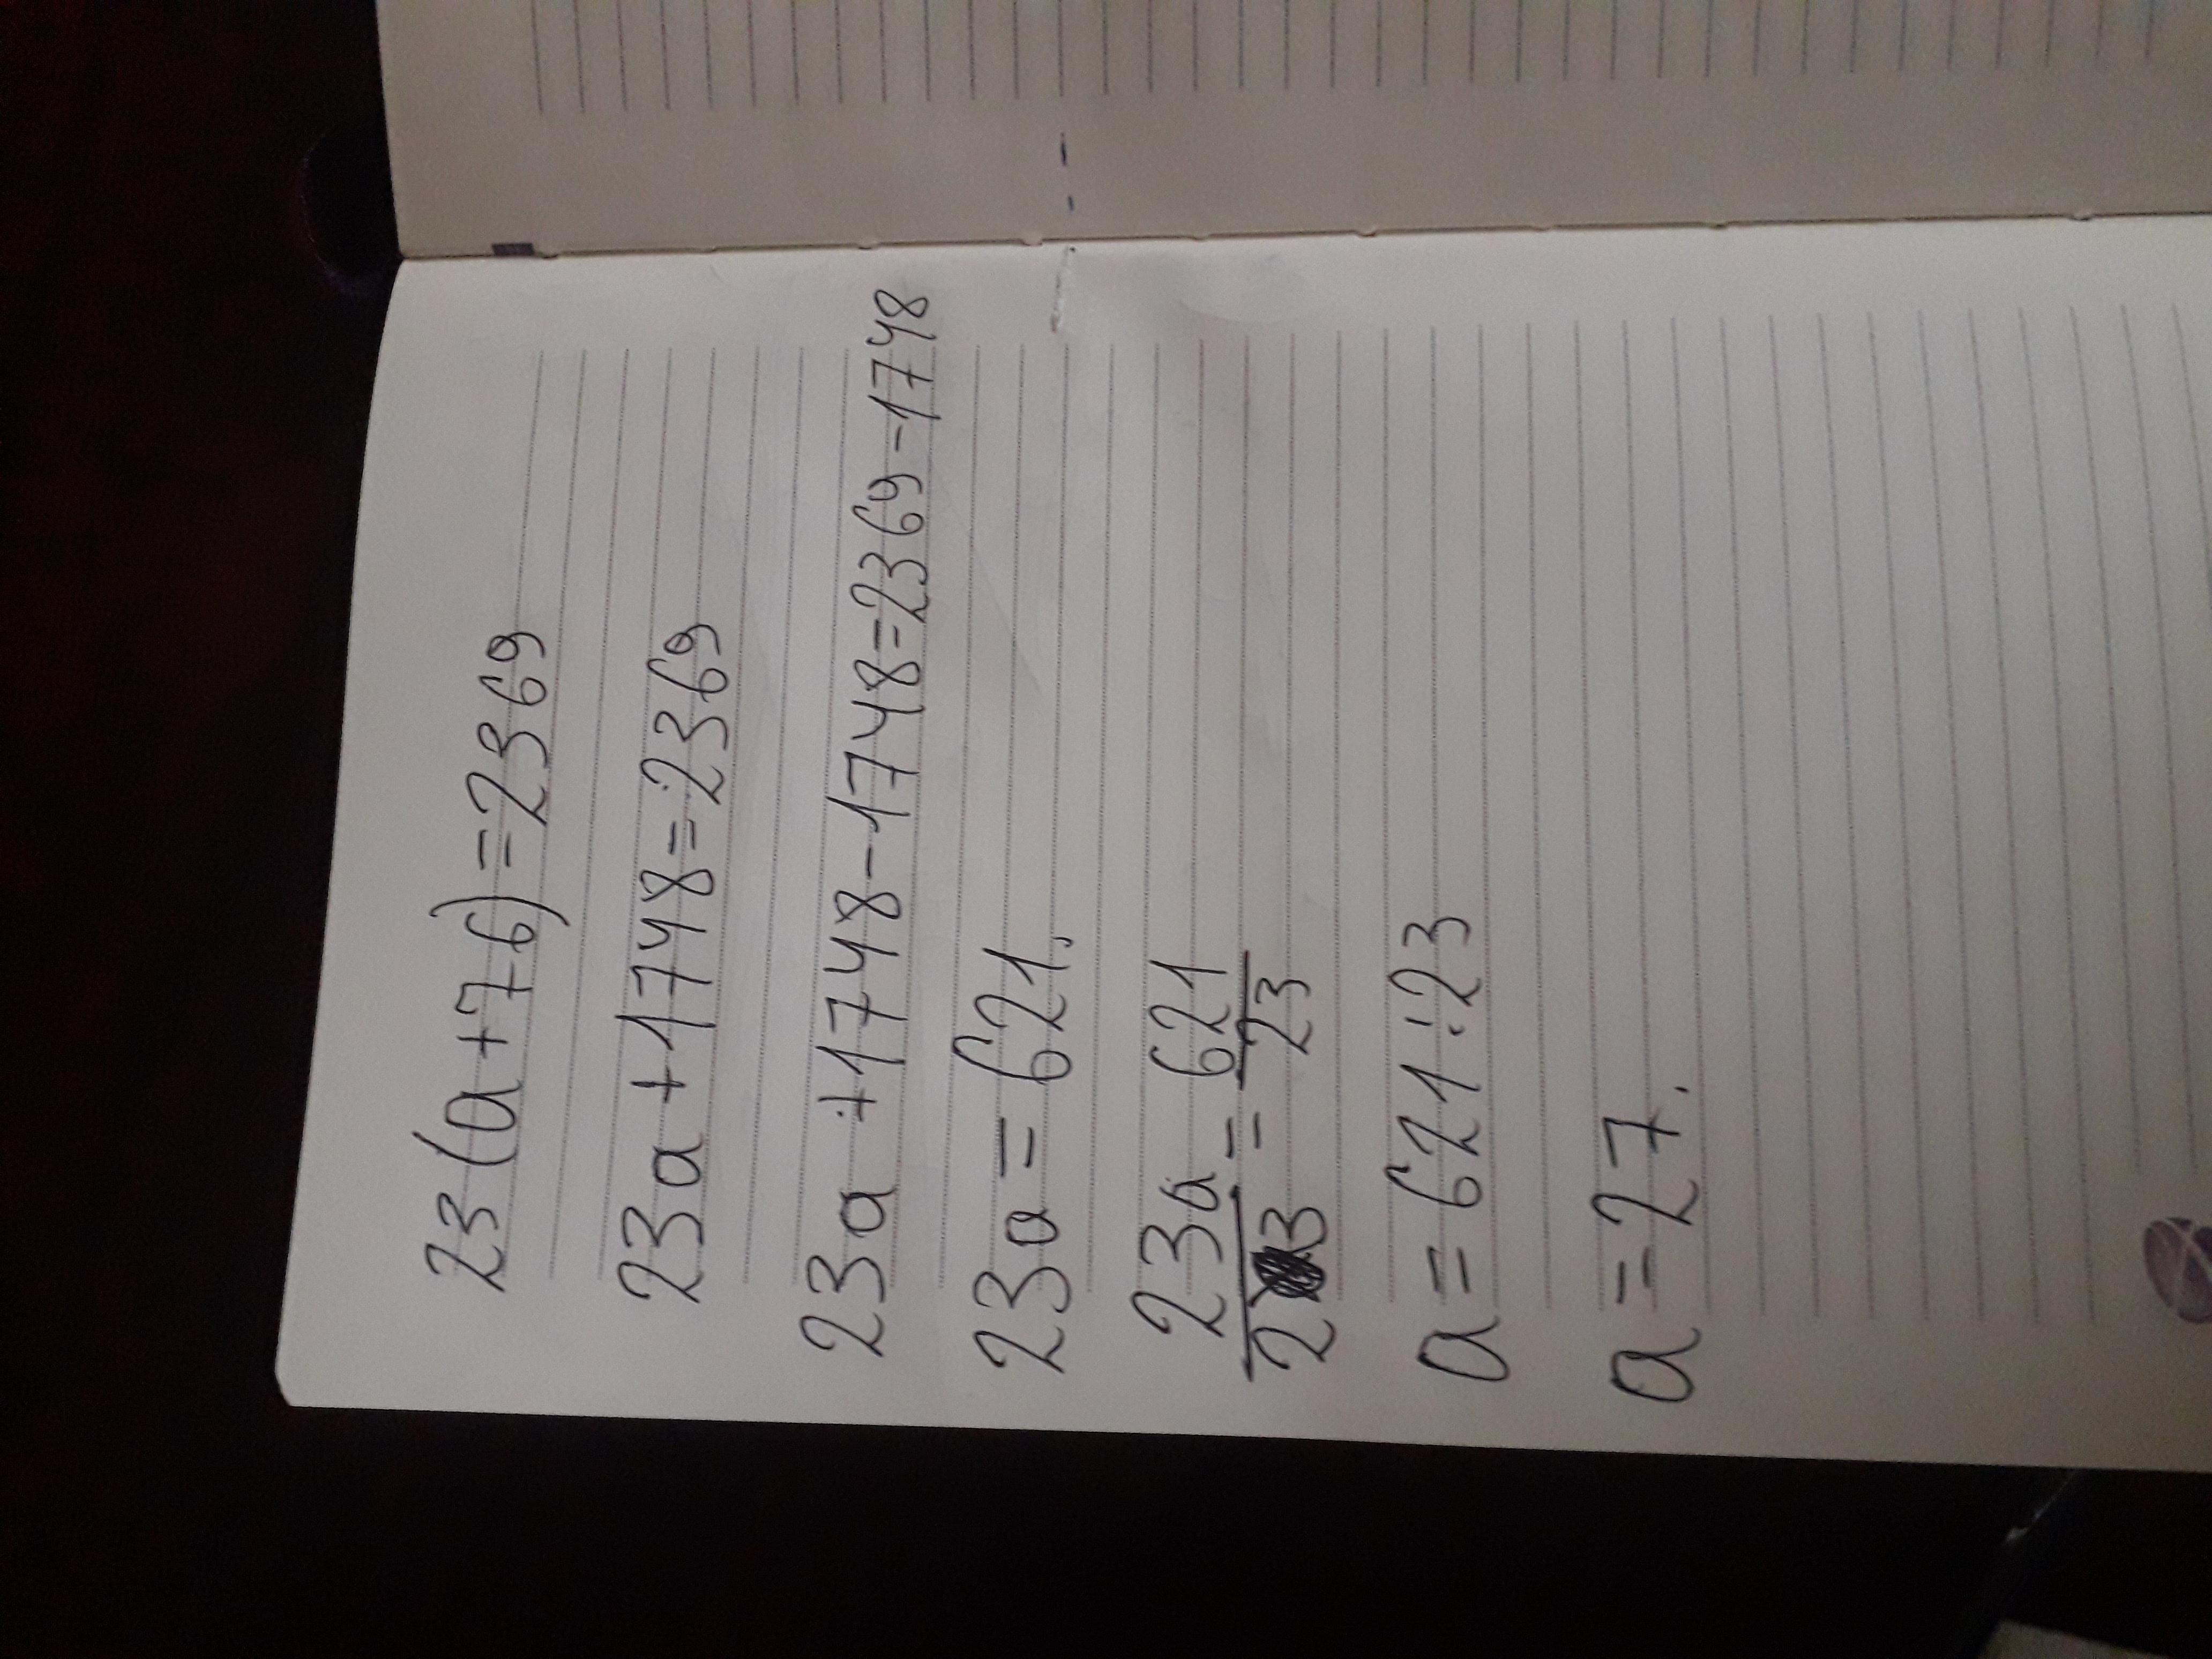 23(a+76)=2369
23a+1748=2369
23a+1748-1748=2369-1748
23a=621.
23a/23=621/23
a=621÷23
a=27.